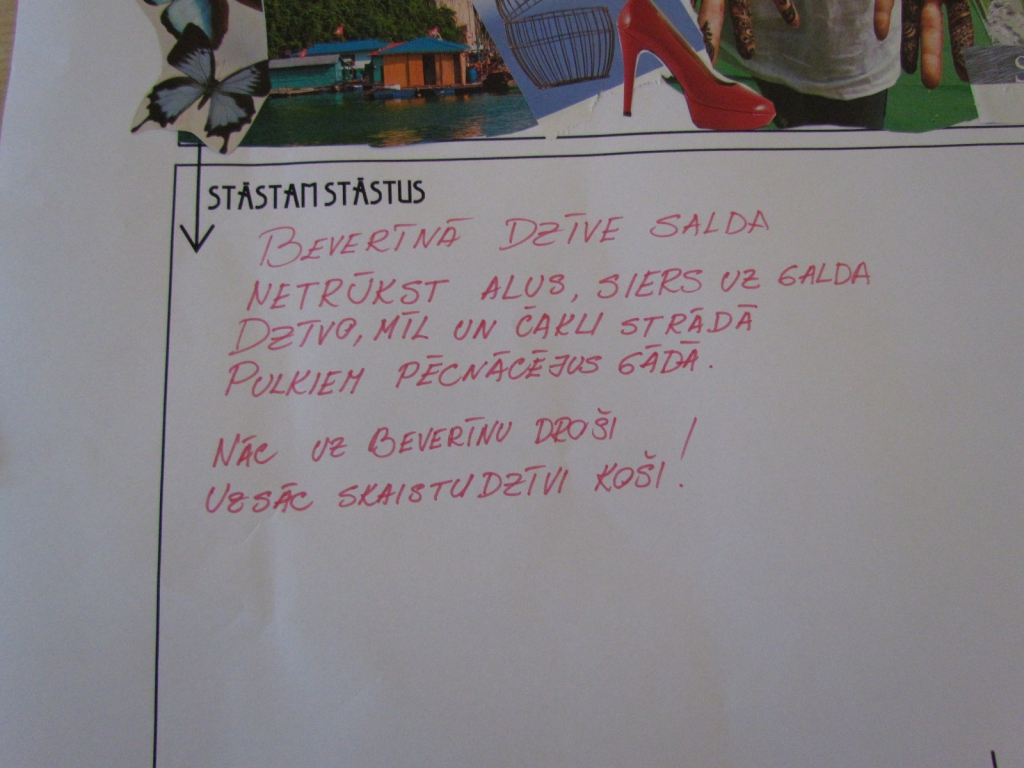 STĀSTAM STĀSTUS
BEVERĪNĀ DZĪVE SALDA
NETRŪKST ALUS, SIERS UZ GALDA
DZĪVO, MĪL UN ČAKLI STRĀDĀ
PULKIEM PĒCNĀCĒJUS GĀDĀ.
NĀC UZ BEVERĪNU DROŠI
UZSĀC SKAISTU DZĪVI KOŠI!